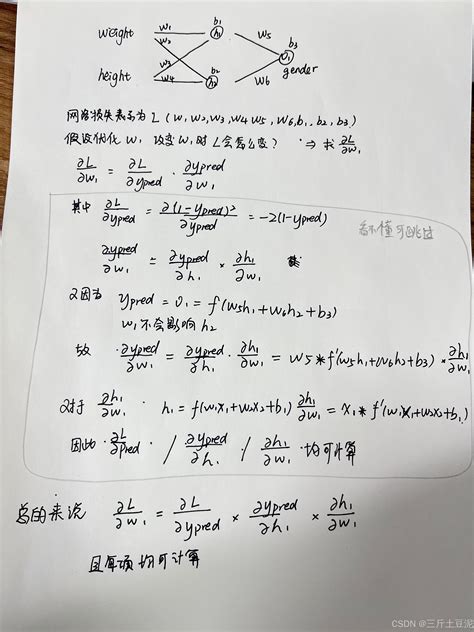 weight w₁ b₁ h₁ w₅
w₂ b₃
w₃ b₂ O₁
height w₄ h₂ w₆ gender
网络损失表示为 L(w₁, w₂, w₃, w₄ w₅, w₆, b₁, b₂, b₃)
假设优化 w₁, 改变 w₁ 时 L会怎么变? ⇒ 求 ∂L/∂w₁
∂L/∂w₁ = ∂L/∂ypred · ∂ypred/∂w₁
其中 ∂L/∂ypred = ∂(1-ypred)²/∂ypred = -2(1-ypred)
看不懂可跳过
∂ypred/∂w₁ = ∂ypred/∂h₁ × ∂h₁/∂w₁
又因为 ypred = O₁ = f(w₅h₁+w₆h₂+b₃)
w₁不会影响h₂
故 ·∂ypred/∂w₁ = ∂ypred/∂h₁ · ∂h₁/∂w₁ = w₅*f'(w₅h₁+w₆h₂+b₃) × ∂h₁/∂w₁
又对于 ∂h₁/∂w₁ · h₁ = f(w₁x₁+w₂x₂+b₁) ∂h₁/∂w₁ = x₁*f'(w₁x₁+w₂x₂+b₁)
因此 · ∂L/∂pred · / ∂ypred/∂h₁ · / ∂h₁/∂w₁ · 均可计算
总的来说 ∂L/∂w₁ = ∂L/∂ypred × ∂ypred/∂h₁ × ∂h₁/∂w₁
且每项均可计算
CSDN @三斤土豆泥